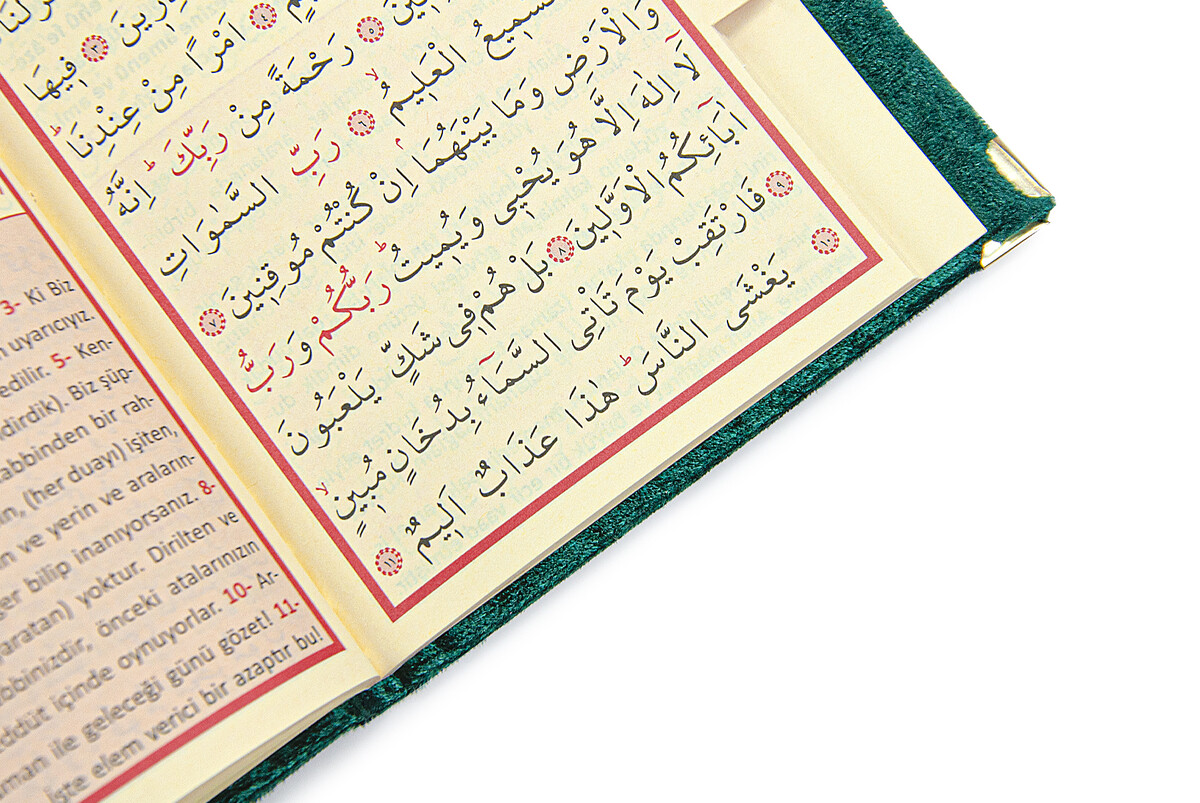 ﴿٣﴾ فِيهَا
﴿٤﴾ اَمْرًا مِنْ عِنْدِنَا
﴿٥﴾ رَحْمَةً مِنْ رَبِّكَ اِنَّهُ
السَّمِيعُ الْعَلِيمُ ﴿٦﴾ رَبِّ السَّمٰوَاتِ
وَالْاَرْضِ وَمَا بَيْنَهُمَا اِنْ كُنْتُمْ مُوقِنِينَ ﴿٧﴾
لَٓا اِلٰهَ اِلَّا هُوَ يُحْيِى وَيُمِيتُ رَبُّكُمْ وَرَبُّ
اٰبَٓائِكُمُ الْاَوَّلِينَ ﴿٨﴾ بَلْ هُمْ فِى شَكٍّ يَلْعَبُونَ
﴿٩﴾ فَارْتَقِبْ يَوْمَ تَاْتِى السَّمَٓاءُ بِدُخَانٍ مُبِينٍ
﴿١٠﴾ يَغْشَى النَّاسَ هٰذَا عَذَابٌ اَلِيمٌ ﴿١١﴾
3- Ki Biz
uyarıcıyız.
edilir. 5- Ken-
dirdik). Biz şüp-
abbinden bir rah-
(her duayı) işiten,
n ve yerin ve araların-
ğer bilip inanıyorsanız. 8-
yaratan) yoktur. Dirilten ve
bbinizdir, önceki atalarınızın
ddüt içinde oynuyorlar. 10- Ar-
uman ile geleceği günü gözet! 11-
İşte elem verici bir azaptır bu!